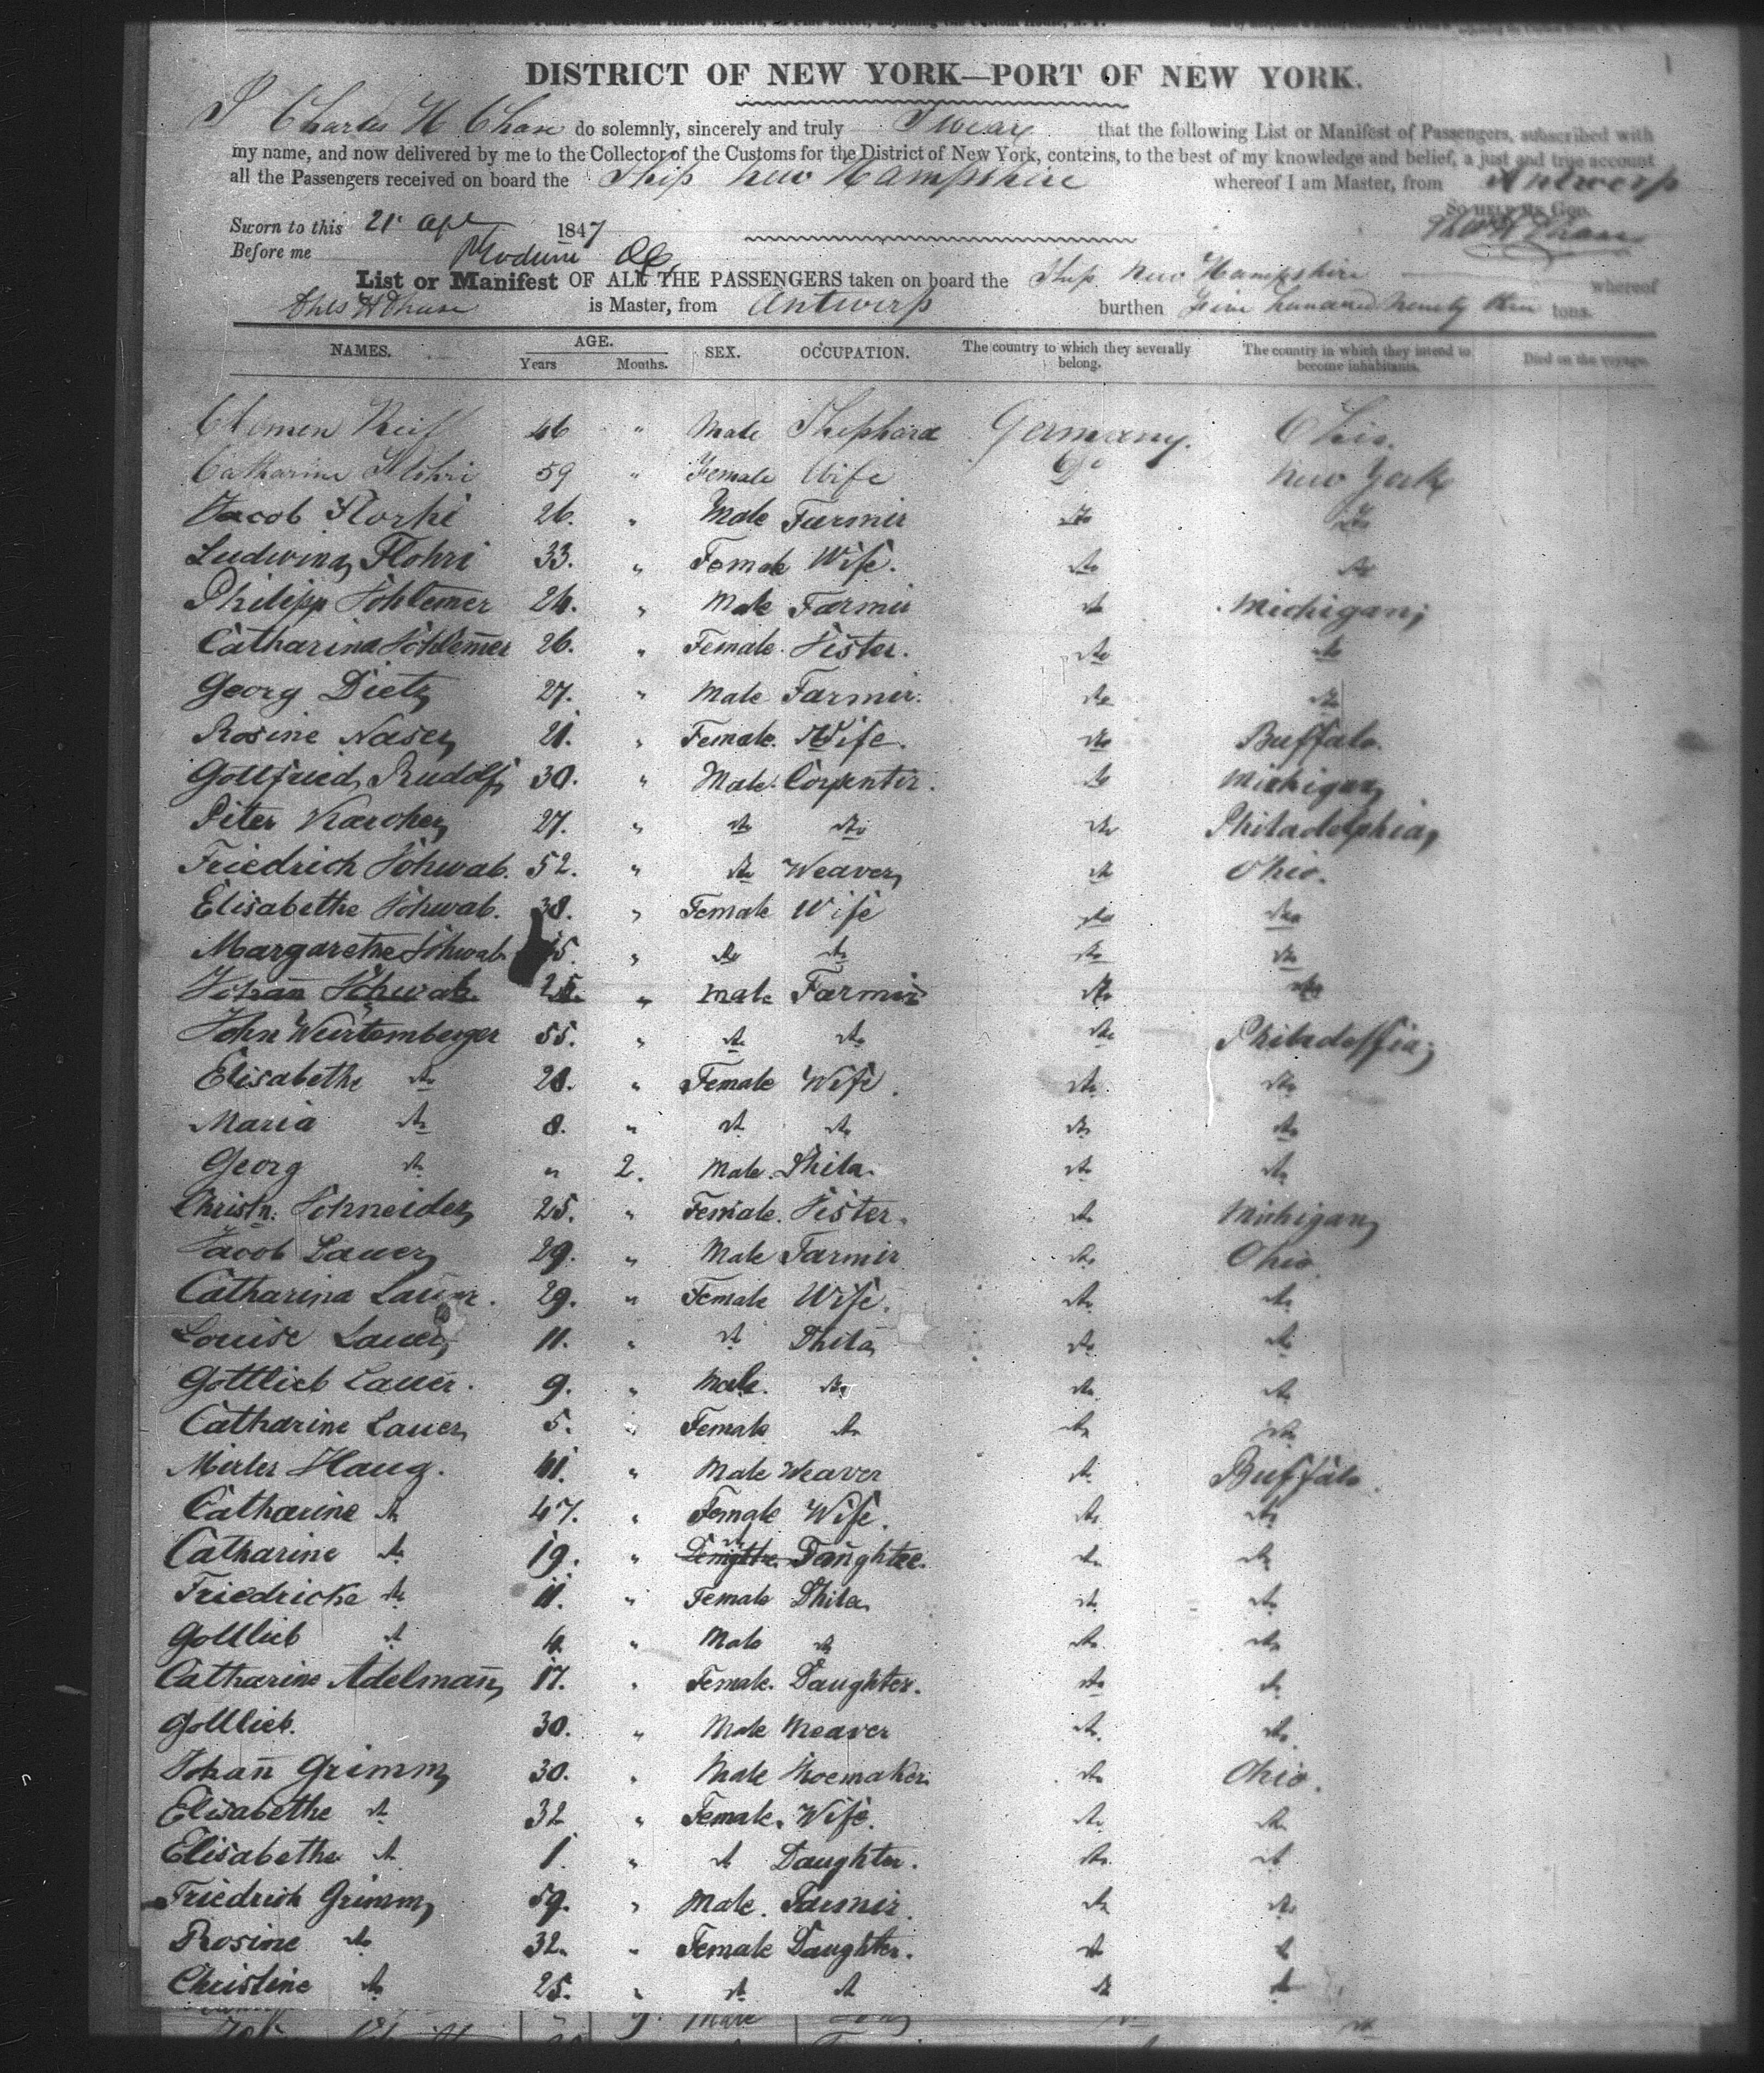 DISTRICT OF NEW YORK—PORT OF NEW YORK.
I Charles H Chase do solemnly, sincerely and truly Swear that the following List or Manifest of Passengers, subscribed with
my name, and now delivered by me to the Collector of the Customs for the District of New York, contains, to the best of my knowledge and belief, a just and true account
all the Passengers received on board the Ship New Hampshire whereof I am Master, from Antwerp
So help me God.
Sworn to this 21 Apl 1847
Before me
List or Manifest OF ALL THE PASSENGERS taken on board the Ship New Hampshire whereof
Chls H Chase is Master, from Antwerp burthen Five hundred ninety tons.
NAMES. AGE. Years Months. SEX. OCCUPATION. The country to which they severally belong. The country in which they intend to become inhabitants. Died on the voyage.
Clemen Reif 46 " Male Shephard Germany. Ohio.
Catharine Flohri 59 " Female Wife Do New York
Jacob Florhi 26. " Male Farmir do do
Ludwina Flohri 33. " Female Wife. do do
Philipp Schlemer 24. " Male Farmir do Michigan;
Catharina Schlem̄er 26. " Female. Sister. do do
Georg Dietz 27. " Male Farmir. do do
Rosine Naser 21. " Female. Wife. do Buffalo.
Gottfried Rudolf 30. " Male. Corpenter. do Michigan
Piter Karcher 27. " do do do Philadelphia
Friedrich Schwab. 52. " do Weaver do Ohio.
Elisabethe Schwab. 38. " Female Wife do do
Margarethe Schwab 15. " do do do do
Johan̄ Schwab. 25. " Male Farmir do do
John Wurtemberger 55. " do do do Philadelfia;
Elisabethe do 28. " Female Wife. do do
Maria do 8. " do do do do
Georg do " 2. Male. Child. do do
Christn: Schneider 25. " Female. Sister. do Michigan
Jacob Lauer 29. " Male Farmir do Ohio
Catharina Lauer. 29. " Female Wife. do do
Louise Lauer 11. " do Child do do
Gottlieb Lauer. 9. " Male. do do do
Catharine Lauer 5. " Female do do do
Haug. 41. " Male Weaver do Buffalo.
Catharine do 47. " Female Wife. do do
Catharine do 19. " do Daughter. do do
Friedricke do 11. " Female Child do do
Gottlieb do 4. " Male do do do
Catharine Adelman̄ 17. " Female. Daughter. do do
Gottlieb. 30. " Male Weaver do do
Johan̄ Grimm 30. " Male Shoemaker. do Ohio.
Elisabethe do 32 " Female. Wife. do do
Elisabethe do 1. " do Daughter. do do
Friedrich Grimm 59. " Male. Farmir. do do
Rosine do 32. " Female Daughter. do do
Christine do 25. " do do do do